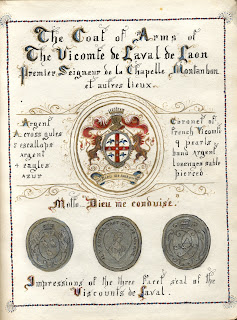 The Coat of Arms of
The Vicomte de Laval de Laon
Premier Seigneur de la Chapelle Montanbon
et autres lieux.
Argent
A cross gules
5 escallops
argent
4 eagles
azur
Coronet of
French Vicomte
9 pearls
band argent
lozenges sable
pierced
Motto "Dieu me conduise."
Impressions of the three facet seal of the
Viscounts de Laval.